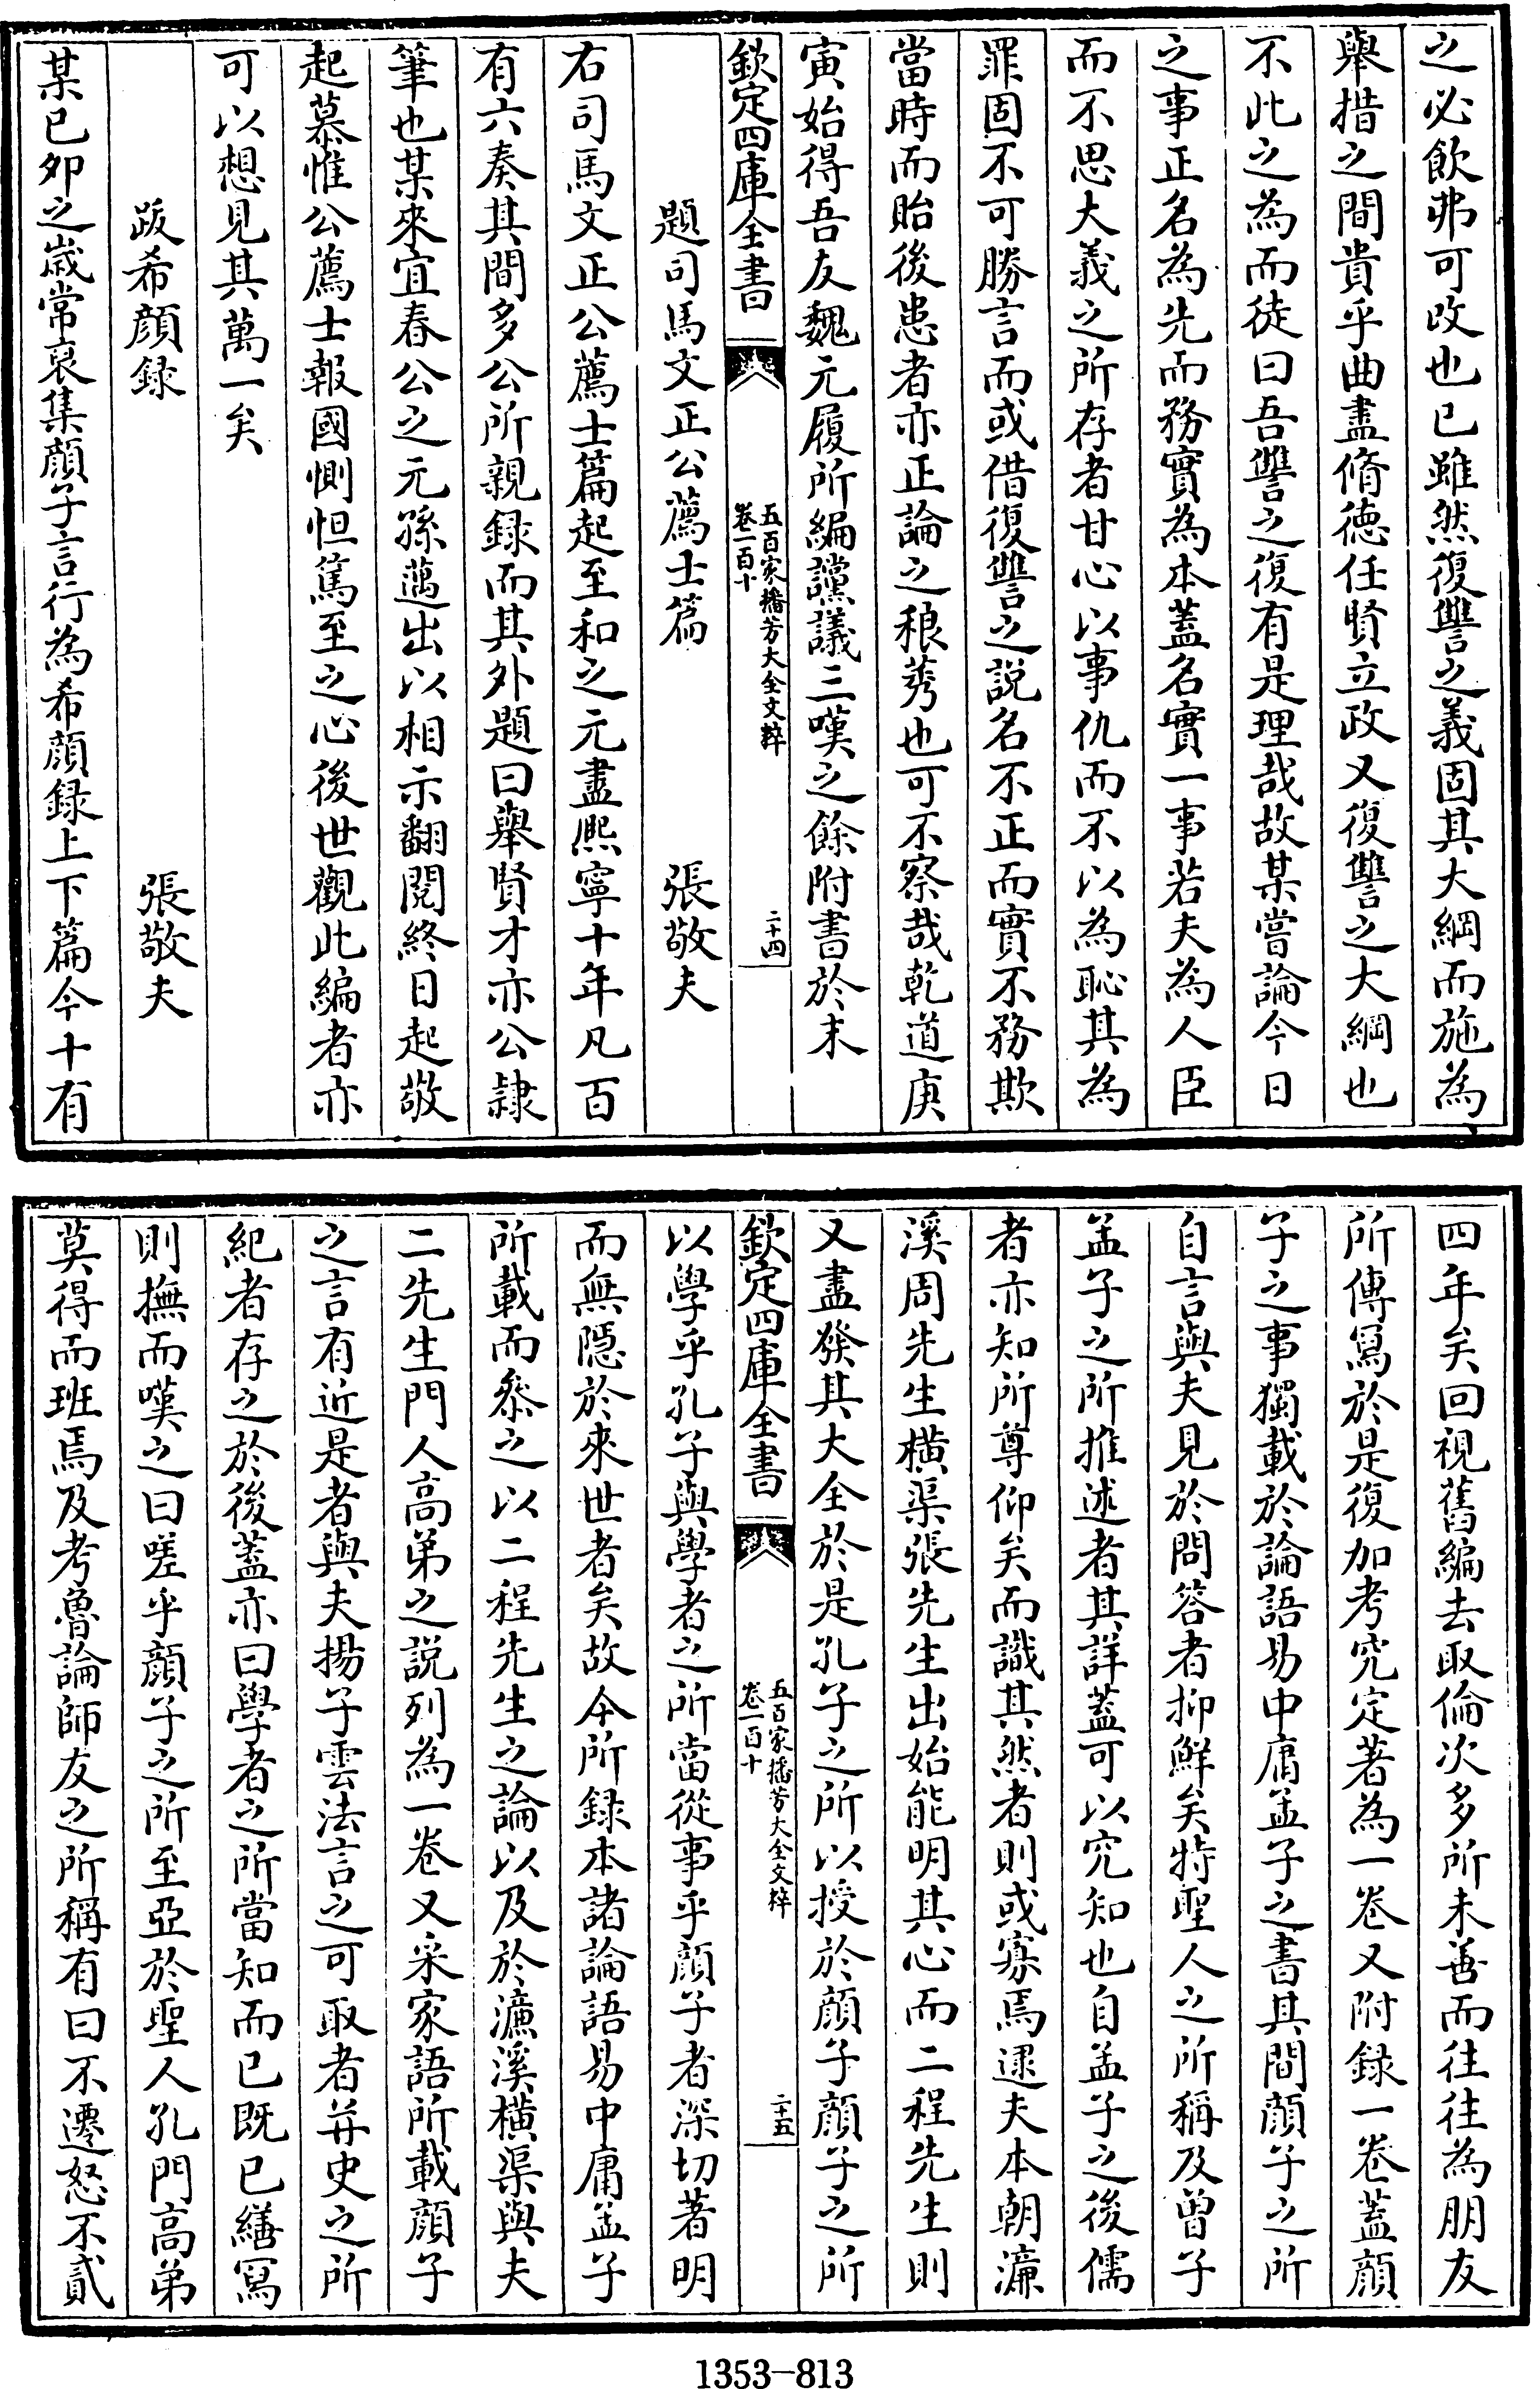 之必飲弗可改也已雖然復讐之義固其大綱而施為
舉措之間貴乎曲盡脩徳任賢立政又復讐之大綱也
不此之為而徒曰吾讐之復有是理哉故某嘗論今日
之事正名為先而務實為本蓋名實一事若夫為人臣
而不思大義之所存者甘心以事仇而不以為恥其為
罪固不可勝言而或借復讐之説名不正而實不務欺
當時而貽後患者亦正論之稂莠也可不察哉乾道庚
寅始得吾友魏元履所編讜議三嘆之餘附書於末
欽定四庫全書
五百家播芳大全文粹
卷一百十
二十四
題司馬文正公薦士篇
張敬夫
右司馬文正公薦士篇起至和之元盡熈寧十年凡百
有六奏其間多公所親録而其外題曰舉賢才亦公隷
筆也某來宜春公之元孫邁出以相示翻閲終日起敬
起慕惟公薦士報國惻怛篤至之心後世觀此編者亦
可以想見其萬一矣
跋希顔録
張敬夫
某已夘之歳常裒集顔子言行為希顔録上下篇今十有
四年矣回視舊編去取倫次多所未善而往往為朋友
所傳冩於是復加考究定著為一卷又附録一卷蓋顔
子之事獨載於論語易中庸孟子之書其間顔子之所
自言與夫見於問答者抑鮮矣特聖人之所稱及曽子
孟子之所推述者其詳蓋可以究知也自孟子之後儒
者亦知所尊仰矣而識其然者則或寡焉逮夫本朝濓
溪周先生横渠張先生出始能明其心而二程先生則
又盡發其大全於是孔子之所以授於顔子顔子之所
欽定四庫全書
五百家播芳大全文粹
卷一百十
二十五
以學乎孔子與學者之所當從事乎顔子者深切著明
而無隠於來世者矣故今所録本諸論語易中庸孟子
所載而叅之以二程先生之論以及於濓溪横渠與夫
二先生門人高弟之説列為一卷又采家語所載顔子
之言有近是者與夫揚子雲法言之可取者并史之所
紀者存之於後蓋亦曰學者之所當知而已既已繕冩
則撫而嘆之曰嗟乎顔子之所至亞於聖人孔門高弟
莫得而班焉及考魯論師友之所稱有曰不遷怒不貳
1353-813